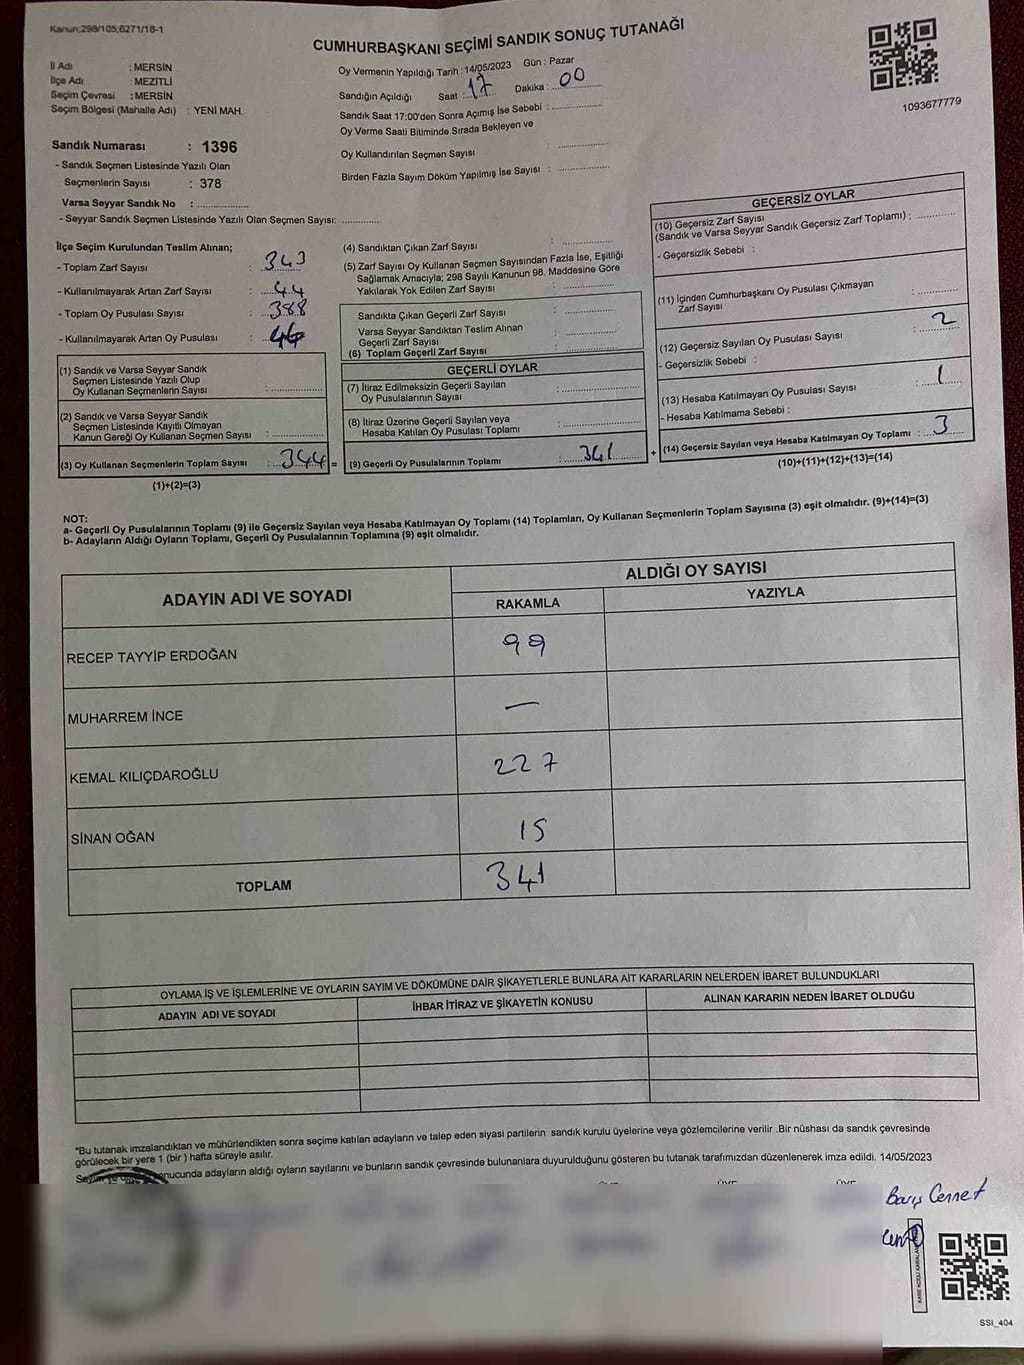 Kanun:298/105,6271/18-1
CUMHURBAŞKANI SEÇİMİ SANDIK SONUÇ TUTANAĞI
1093677779
İl Adı : MERSİN
İlçe Adı : MEZİTLİ
Seçim Çevresi : MERSİN
Seçim Bölgesi (Mahalle Adı) : YENİ MAH.
Oy Vermenin Yapıldığı Tarih :14/05/2023 Gün : Pazar
Sandığın Açıldığı Saat : 17 Dakika : 00
Sandık Saat 17:00'den Sonra Açımış İse Sebebi :
Oy Verme Saati Bitiminde Sırada Bekleyen ve
Oy Kullandırılan Seçmen Sayısı :
Birden Fazla Sayım Döküm Yapılmış İse Sayısı :
Sandık Numarası : 1396
- Sandık Seçmen Listesinde Yazılı Olan
Seçmenlerin Sayısı : 378
Varsa Seyyar Sandık No :
- Seyyar Sandık Seçmen Listesinde Yazılı Olan Seçmen Sayısı:
İlçe Seçim Kurulundan Teslim Alınan;
- Toplam Zarf Sayısı : 343
- Kullanılmayarak Artan Zarf Sayısı : 44
- Toplam Oy Pusulası Sayısı : 388
- Kullanılmayarak Artan Oy Pusulası : 44
(1) Sandık ve Varsa Seyyar Sandık
Seçmen Listesinde Yazılı Olup
Oy Kullanan Seçmenlerin Sayısı :
(2) Sandık ve Varsa Seyyar Sandık
Seçmen Listesinde Kayıtlı Olmayan
Kanun Gereği Oy Kullanan Seçmen Sayısı :
(3) Oy Kullanan Seçmenlerin Toplam Sayısı : 344 =
(1)+(2)=(3)
(4) Sandıktan Çıkan Zarf Sayısı :
(5) Zarf Sayısı Oy Kullanan Seçmen Sayısından Fazla İse, Eşitliği
Sağlamak Amacıyla; 298 Sayılı Kanunun 98. Maddesine Göre
Yakılarak Yok Edilen Zarf Sayısı :
Sandıkta Çıkan Geçerli Zarf Sayısı :
Varsa Seyyar Sandıktan Teslim Alınan
Geçerli Zarf Sayısı :
(6) Toplam Geçerli Zarf Sayısı :
GEÇERLİ OYLAR
(7) İtiraz Edilmeksizin Geçerli Sayılan
Oy Pusulalarının Sayısı :
(8) İtiraz Üzerine Geçerli Sayılan veya
Hesaba Katılan Oy Pusulası Toplamı :
(9) Geçerli Oy Pusulalarının Toplamı : 341 +
GEÇERSİZ OYLAR
(10) Geçersiz Zarf Sayısı
(Sandık ve Varsa Seyyar Sandık Geçersiz Zarf Toplamı) :
- Geçersizlik Sebebi :
(11) İçinden Cumhurbaşkanı Oy Pusulası Çıkmayan
Zarf Sayısı :
(12) Geçersiz Sayılan Oy Pusulası Sayısı : 2
- Geçersizlik Sebebi :
(13) Hesaba Katılmayan Oy Pusulası Sayısı : 1
- Hesaba Katılmama Sebebi :
(14) Geçersiz Sayılan veya Hesaba Katılmayan Oy Toplamı : 3
(10)+(11)+(12)+(13)=(14)
NOT:
a- Geçerli Oy Pusulalarının Toplamı (9) ile Geçersiz Sayılan veya Hesaba Katılmayan Oy Toplamı (14) Toplamları, Oy Kullanan Seçmenlerin Toplam Sayısına (3) eşit olmalıdır. (9)+(14)=(3)
b- Adayların Aldığı Oyların Toplamı, Geçerli Oy Pusulalarının Toplamına (9) eşit olmalıdır.
ADAYIN ADI VE SOYADI ALDIĞI OY SAYISI
RAKAMLA YAZIYLA
RECEP TAYYİP ERDOĞAN 99
MUHARREM İNCE —
KEMAL KILIÇDAROĞLU 227
SİNAN OĞAN 15
TOPLAM 341
OYLAMA İŞ VE İŞLEMLERİNE VE OYLARIN SAYIM VE DÖKÜMÜNE DAİR ŞİKAYETLERLE BUNLARA AİT KARARLARIN NELERDEN İBARET BULUNDUKLARI
ADAYIN ADI VE SOYADI İHBAR İTİRAZ VE ŞİKAYETİN KONUSU ALINAN KARARIN NEDEN İBARET OLDUĞU
*Bu tutanak imzalandıktan ve mühürlendikten sonra seçime katılan adayların ve talep eden siyasi partilerin sandık kurulu üyelerine veya gözlemcilerine verilir .Bir nüshası da sandık çevresinde
görülecek bir yere 1 (bir ) hafta süreyle asılır.
sonucunda adayların aldığı oyların sayılarını ve bunların sandık çevresinde bulunanlara duyurulduğunu gösteren bu tutanak tarafımızdan düzenlenerek imza edildi. 14/05/2023
Barış Cennet
SSI_404